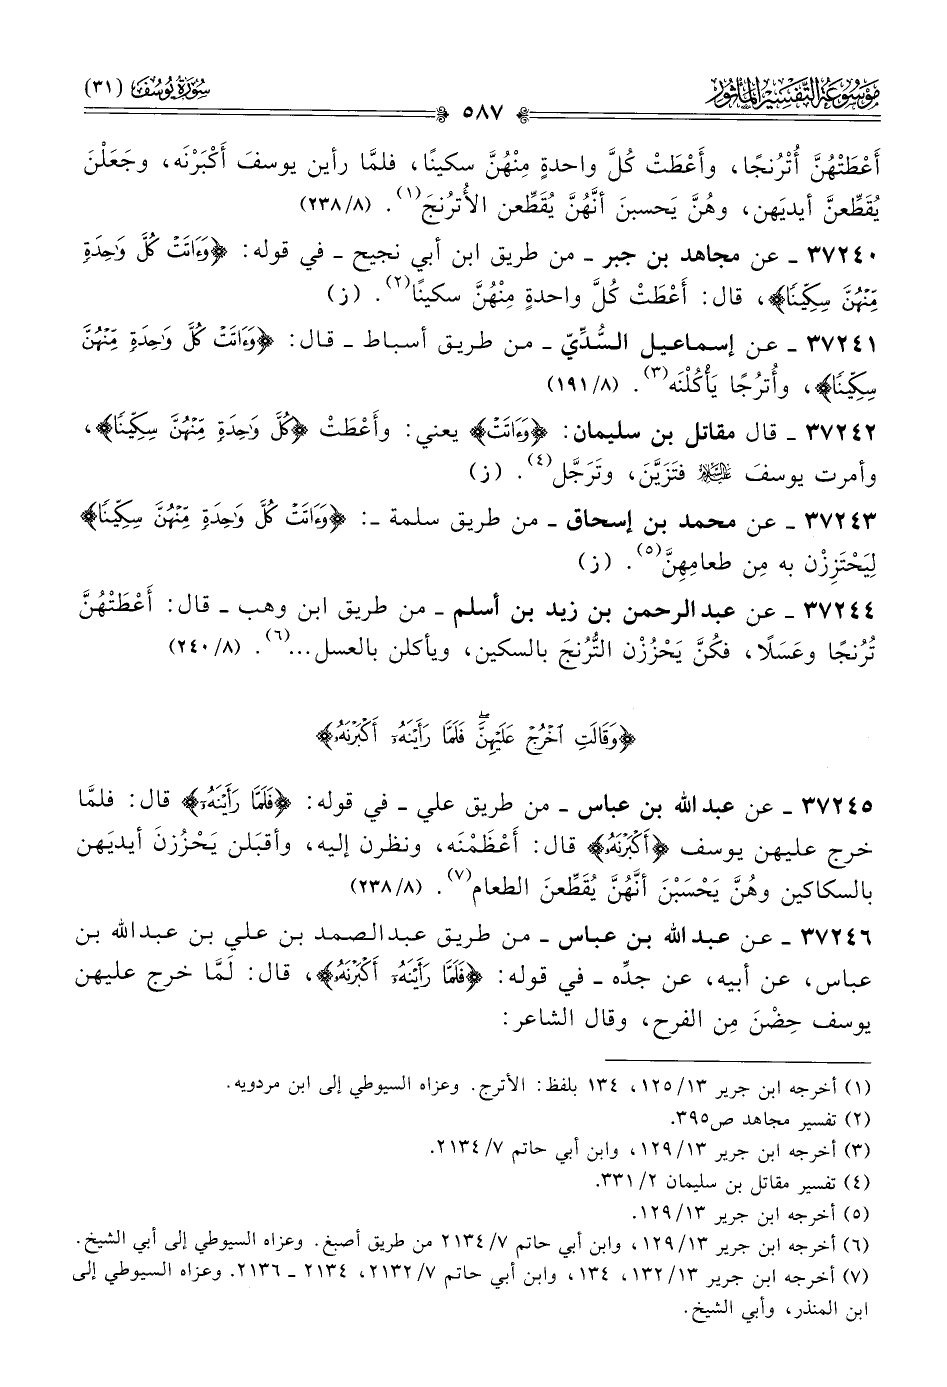 موسوعة التفسير المأثور
سورة يوسف (٣١)
٥٨٧
أَعْطَتْهُنَّ أُتْرُنجًا، وأَعْطَتْ كُلَّ واحدةٍ مِنْهُنَّ سكينًا، فلمَّا رأين يوسفَ أَكْبَرْنَه، وجَعَلْنَ
يُقطِّعنَّ أيديَهن، وهُنَّ يَحسبنَ أنَّهُنَّ يُقَطِّعن الأُترُنجَ(١). (٢٣٨/٨)
٣٧٢٤٠ ـ عن مجاهد بن جبر ـ من طريق ابن أبي نجيح ـ في قوله: ﴿وَءَاتَتْ كُلَّ وَٰحِدَةٍ
مِّنْهُنَّ سِكِّينًا﴾، قال: أَعْطَتْ كُلَّ واحدةٍ مِنْهُنَّ سكينًا(٢). (ز)
٣٧٢٤١ ـ عن إسماعيل السُّدِّيّ ـ من طريق أسباط ـ قال: ﴿وَءَاتَتْ كُلَّ وَٰحِدَةٍ مِّنْهُنَّ
سِكِّينًا﴾، وأُترُجًا يَأْكُلْنَه(٣). (١٩١/٨)
٣٧٢٤٢ ـ قال مقاتل بن سليمان: ﴿وَءَاتَتْ﴾ يعني: وأَعْطَتْ ﴿كُلَّ وَٰحِدَةٍ مِّنْهُنَّ سِكِّينًا﴾،
وأمرت يوسفَ عليه السلام فتَزَيَّنَ، وتَرَجَّل(٤). (ز)
٣٧٢٤٣ ـ عن محمد بن إسحاق ـ من طريق سلمة ـ: ﴿وَءَاتَتْ كُلَّ وَٰحِدَةٍ مِّنْهُنَّ سِكِّينًا﴾
لِيَحْتَزِزْن به مِن طعامِهِنَّ(٥). (ز)
٣٧٢٤٤ ـ عن عبدالرحمن بن زيد بن أسلم ـ من طريق ابن وهب ـ قال: أَعْطَتْهُنَّ
تُرُنجًا وعَسَلًا، فكُنَّ يَحْزُزْن التُّرُنجَ بالسكين، ويأكلن بالعسل...(٦). (٢٤٠/٨)
﴿وَقَالَتِ ٱخْرُجْ عَلَيْهِنَّ ۖ فَلَمَّا رَأَيْنَهُۥٓ أَكْبَرْنَهُۥ﴾
٣٧٢٤٥ ـ عن عبدالله بن عباس ـ من طريق علي ـ في قوله: ﴿فَلَمَّا رَأَيْنَهُۥٓ﴾ قال: فلمَّا
خرج عليهن يوسف ﴿أَكْبَرْنَهُۥ﴾ قال: أَعْظَمْنَه، ونظرن إليه، وأقبَلن يَحْزُزنَ أيديَهن
بالسكاكين وهُنَّ يَحْسَبْنَ أنَّهُنَّ يُقَطِّعنَ الطعام(٧). (٢٣٨/٨)
٣٧٢٤٦ ـ عن عبدالله بن عباس ـ من طريق عبدالصمد بن علي بن عبدالله بن
عباس، عن أبيه، عن جدِّه ـ في قوله: ﴿فَلَمَّا رَأَيْنَهُۥٓ أَكْبَرْنَهُۥ﴾، قال: لَمَّا خرج عليهن
يوسف حِضْنَ مِن الفرح، وقال الشاعر:
(١) أخرجه ابن جرير ١٣/ ١٢٥، ١٣٤ بلفظ: الأترج. وعزاه السيوطي إلى ابن مردويه.
(٢) تفسير مجاهد ص٣٩٥.
(٣) أخرجه ابن جرير ١٣/ ١٢٩، وابن أبي حاتم ٧/ ٢١٣٤.
(٤) تفسير مقاتل بن سليمان ٢/ ٣٣١.
(٥) أخرجه ابن جرير ١٣/ ١٢٩.
(٦) أخرجه ابن جرير ١٣/ ١٢٩، وابن أبي حاتم ٧/ ٢١٣٤ من طريق أصبغ. وعزاه السيوطي إلى أبي الشيخ.
(٧) أخرجه ابن جرير ١٣/ ١٣٢، ١٣٤، وابن أبي حاتم ٧/ ٢١٣٢، ٢١٣٤ ـ ٢١٣٦. وعزاه السيوطي إلى
ابن المنذر، وأبي الشيخ.